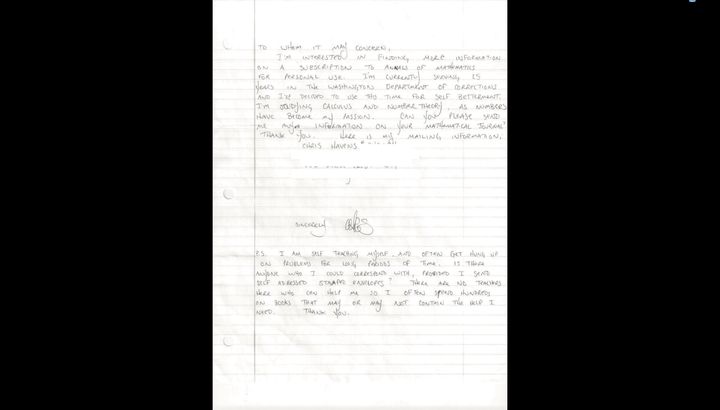 TO WHOM IT MAY CONCERN,
I'M INTERESTED IN FINDING MORE INFORMATION
ON A SUBSCRIPTION TO ANNALS OF MATHEMATICS
FOR PERSONAL USE. I'M CURRENTLY SERVING 25
YEARS IN THE WASHINGTON DEPARTMENT OF CORRECTIONS
AND I'VE DECIDED TO USE THIS TIME FOR SELF BETTERMENT.
I'M STUDYING CALCULUS AND NUMBER THEORY, AS NUMBERS
HAVE BECOME MY PASSION. CAN YOU PLEASE SEND
ME ANY INFORMATION ON YOUR MATHEMATICAL JOURNAL?
THANK YOU. HERE IS MY MAILING INFORMATION,
CHRIS HAVENS
SINCERELY
P.S. I AM SELF TEACHING MYSELF, AND OFTEN GET HUNG UP
ON PROBLEMS FOR LONG PERIODS OF TIME. IS THERE
ANYONE WHO I COULD CORRESPOND WITH, PROVIDED I SEND
SELF ADDRESSED STAMPED ENVELOPES? THERE ARE NO TEACHERS
HERE WHO CAN HELP ME SO I OFTEN SPEND HUNDREDS
ON BOOKS THAT MAY OR MAY NOT CONTAIN THE HELP I
NEED. THANK YOU.